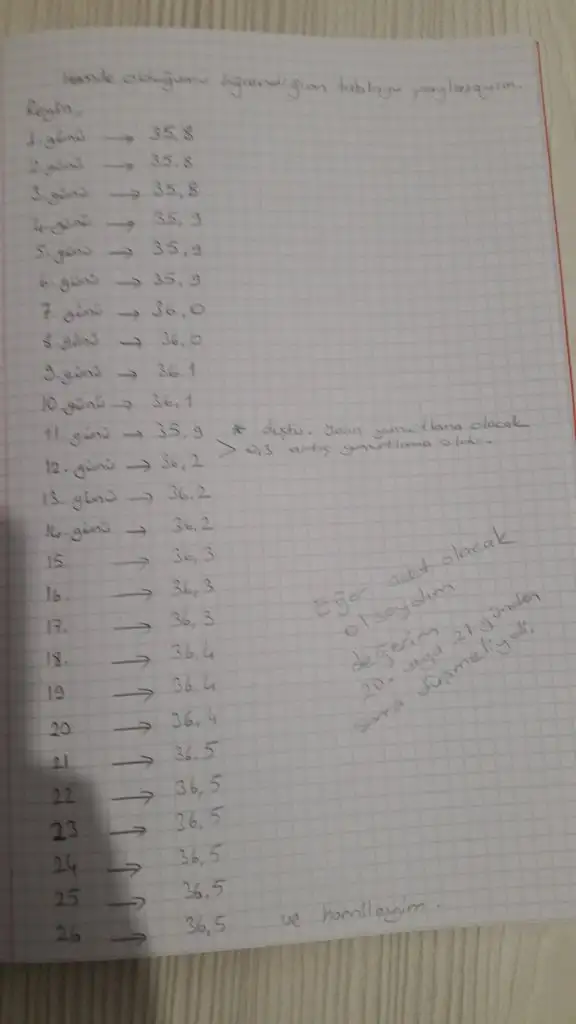 hamile olduğumu öğrendiğim tabloyu paylaşayım.
Reglin.
1. günü → 35,8
2. günü → 35.8
3. günü → 35,8
4. günü → 35,9
5. günü → 35,9
6. günü → 35,9
7. günü → 36,0
8. günü → 36,0
9. günü → 36.1
10. günü → 36,1
11. günü → 35,9 * düştü. Yarın yumurtlama olacak
12. günü → 36,2 > 0,3 artış yumurtlama oldu.
13. günü → 36.2
14. günü → 36,2
15 → 36,3
16. → 36,3
17. → 36,3
18. → 36.4
19 → 36.4
20 → 36,4
21 → 36.5
22 → 36,5
23 → 36,5
24 → 36,5
25 → 36,5
26 → 36,5 ve hamileyim.
Eğer adet olacak
olsaydım
değerim
20. veya 21 günden
sonra düşmeliydi.